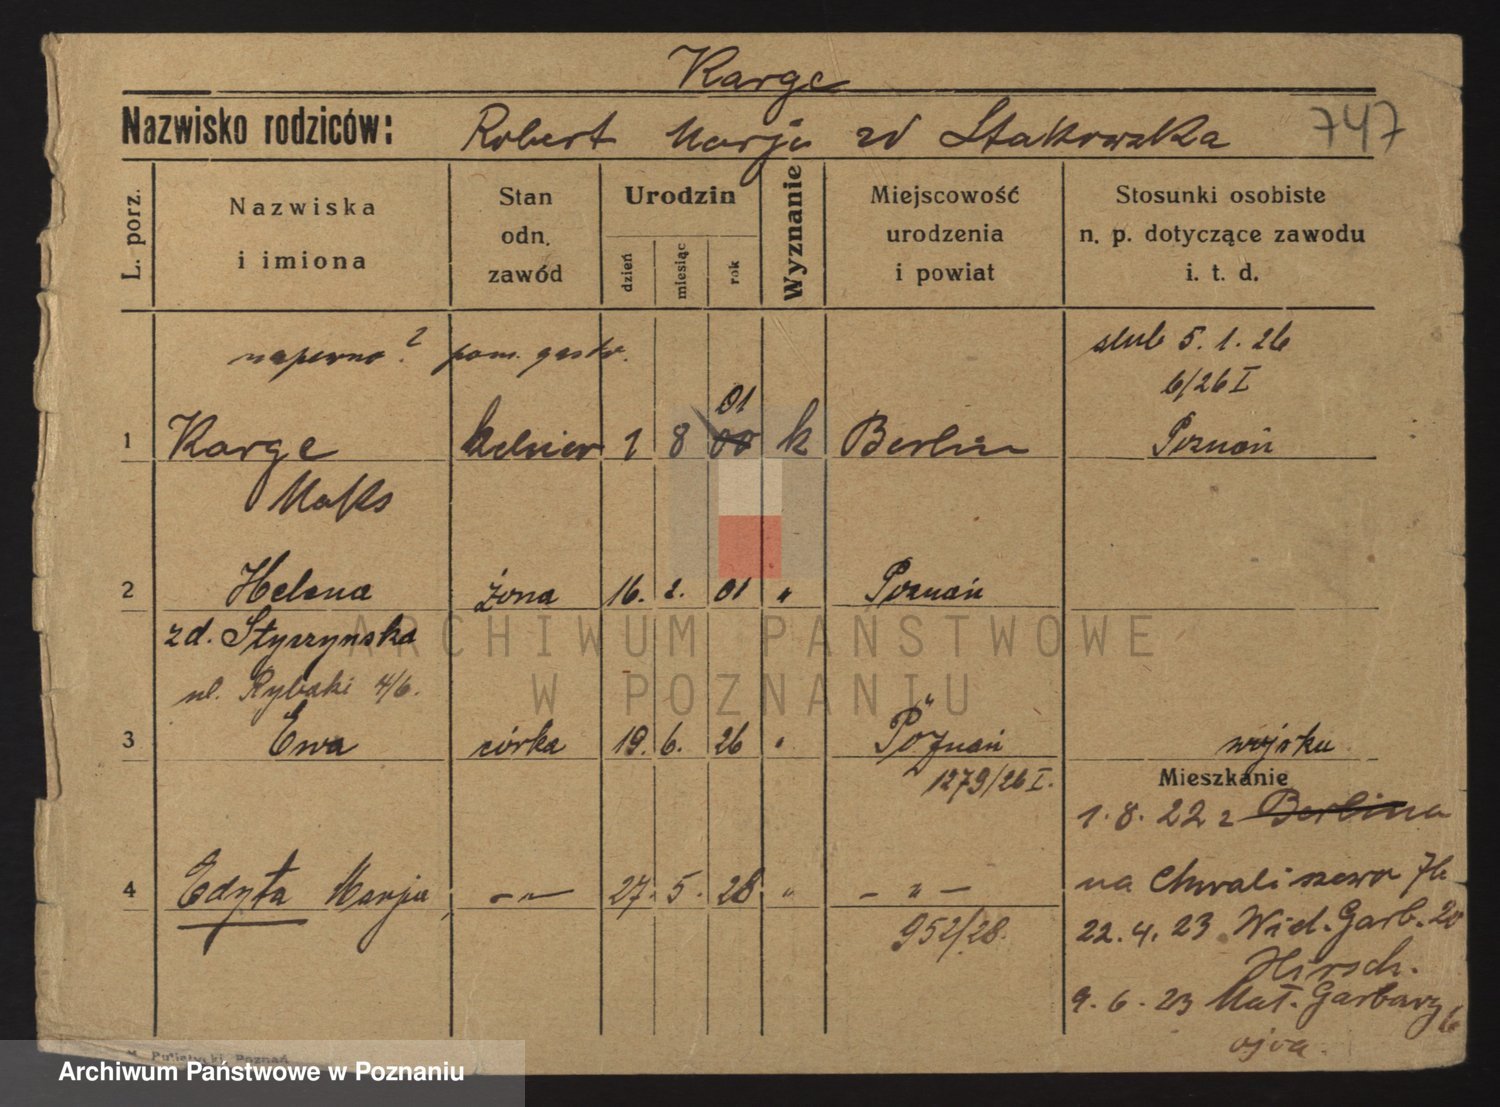 Karge
Nazwisko rodziców: Robert Marja zd Stakowska 747
L. porz. Nazwiska i imiona Stan odn. zawód Urodzin dzień miesiąc rok Wyznanie Miejscowość urodzenia i powiat Stosunki osobiste n. p. dotyczące zawodu i. t. d.
pom. gastr. ślub 5. 1. 26
01 6/26 I
1 Karge kelner 1 8 00 k Berlin Poznań
Maks
2 Helena żona 16. 2. 01 " Poznań
zd. Styrzynska
ul. Rybaki 4/6.
3 Ewa córka 19. 6. 26 " Poznań wojsku
1279/26 I. Mieszkanie
1. 8. 22 z Berlina
4 Edyta Marja, — " — 27. 5. 28 " — " — na Chwaliszewo
952/28. 22. 4. 23 Wiel. Garb. 20
Hirsch.
9. 6. 23 Mał. Garbary 6
ojca.
Poznań
ARCHIWUM PAŃSTWOWE
W POZNANIU
Archiwum Państwowe w Poznaniu